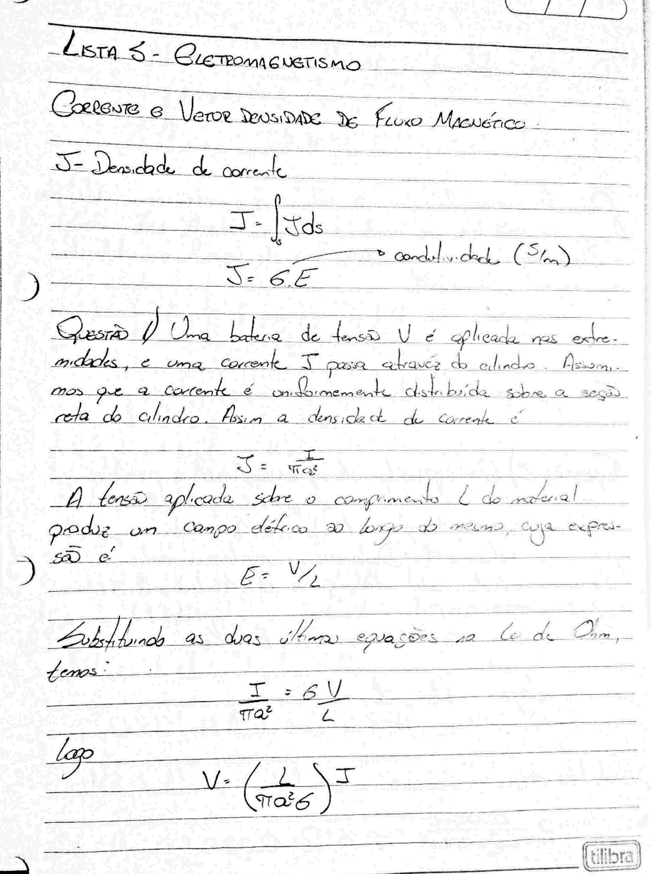 LISTA 5 - ELETROMAGNETISMO
CORRENTE E VETOR DENSIDADE DE FLUXO MAGNÉTICO.
J - Densidade de corrente
I = ∫s J ds
J = σ.E → condutividade (S/m)
QUESTÃO 1) Uma bateria de tensão V é aplicada nas extre-
midades, e uma corrente I passa através do cilindro. Assumi-
mos que a corrente é uniformemente distribuida sobre a seção
reta do cilindro. Assim a densidade de corrente é
J = I/πa²
A tensão aplicada sobre o comprimento L do material
produz um campo elétrico ao longo do mesmo, cuja expres-
são é
E = V/L
Substituindo as duas últimas equações na Lei de Ohm,
temos:
I/πa² = σ V/L
logo
V = (L/πa²σ) I
tilibra